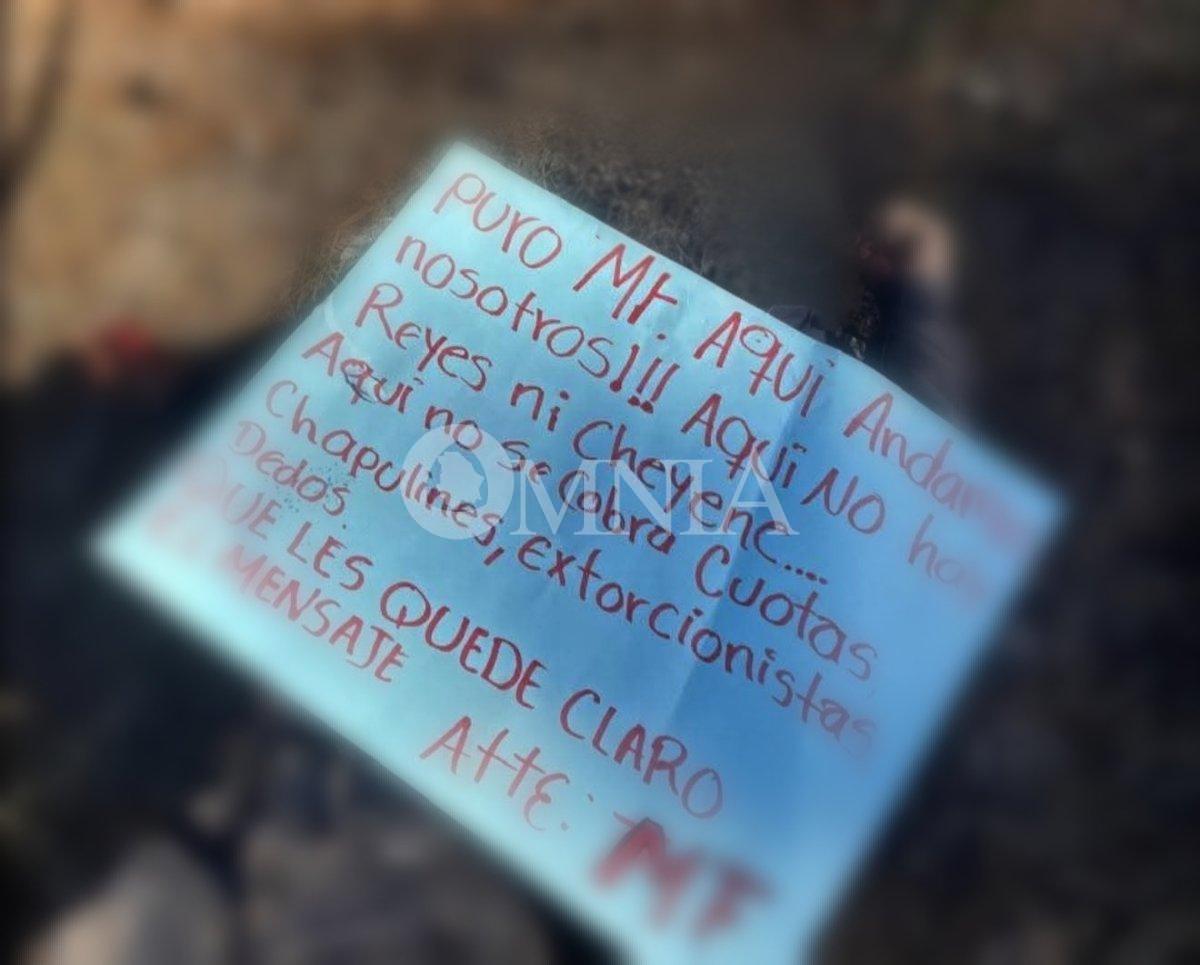 PURO Mt. AQUI Andamos
nosotros!!! AQUI NO hay
Reyes ni Cheyene....
Aqui no se Cobra Cuotas,
Chapulines, extorcionistas
Dedos.
QUE LES QUEDE CLARO
EL MENSAJE
AttE:
MF
OMNIA